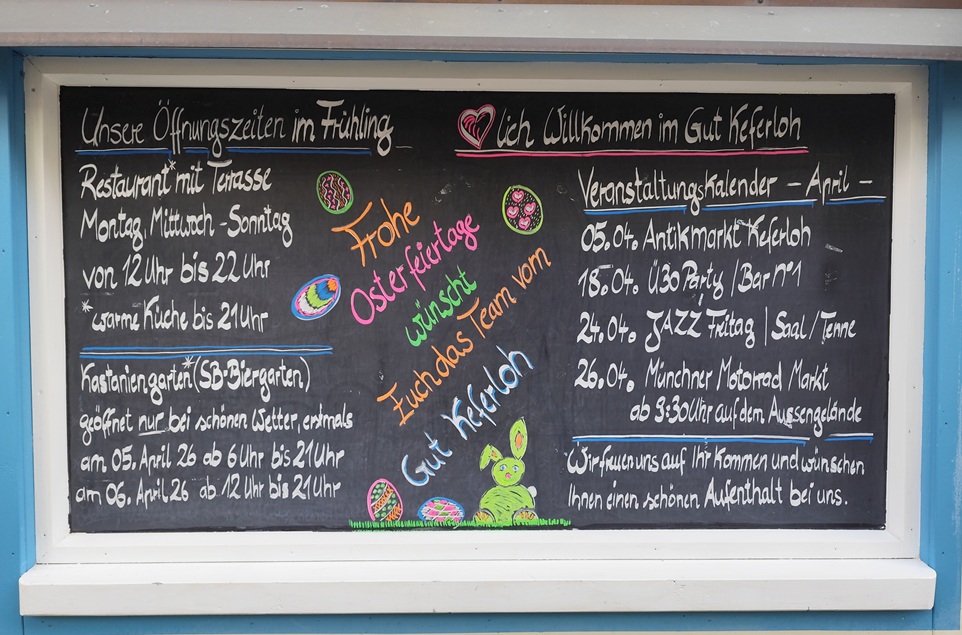 Unsere Öffnungszeiten im Frühling
Restaurant* mit Terasse
Montag, Mittwoch - Sonntag
von 12 Uhr bis 22 Uhr
*warme Küche bis 21 Uhr
Kastaniengarten* (SB-Biergarten)
geöffnet nur bei schönen Wetter, erstmals
am 05. April 26 ab 6 Uhr bis 21 Uhr
am 06. April 26 ab 12 Uhr bis 21 Uhr
Frohe
Osterfeiertage
wünscht
Euch das Team vom
Gut Keferloh
lich Willkommen im Gut Keferloh
Veranstaltungskalender - April -
05.04. Antikmarkt Keferloh
18.04. Ü30 Party / Bar N°1
24.04. JAZZ Freitag | Saal / Tenne
26.04. Münchner Motorrad Markt
ab 9:30 Uhr auf dem Aussengelände
Wir freuen uns auf Ihr Kommen und wünschen
Ihnen einen schönen Aufenthalt bei uns.